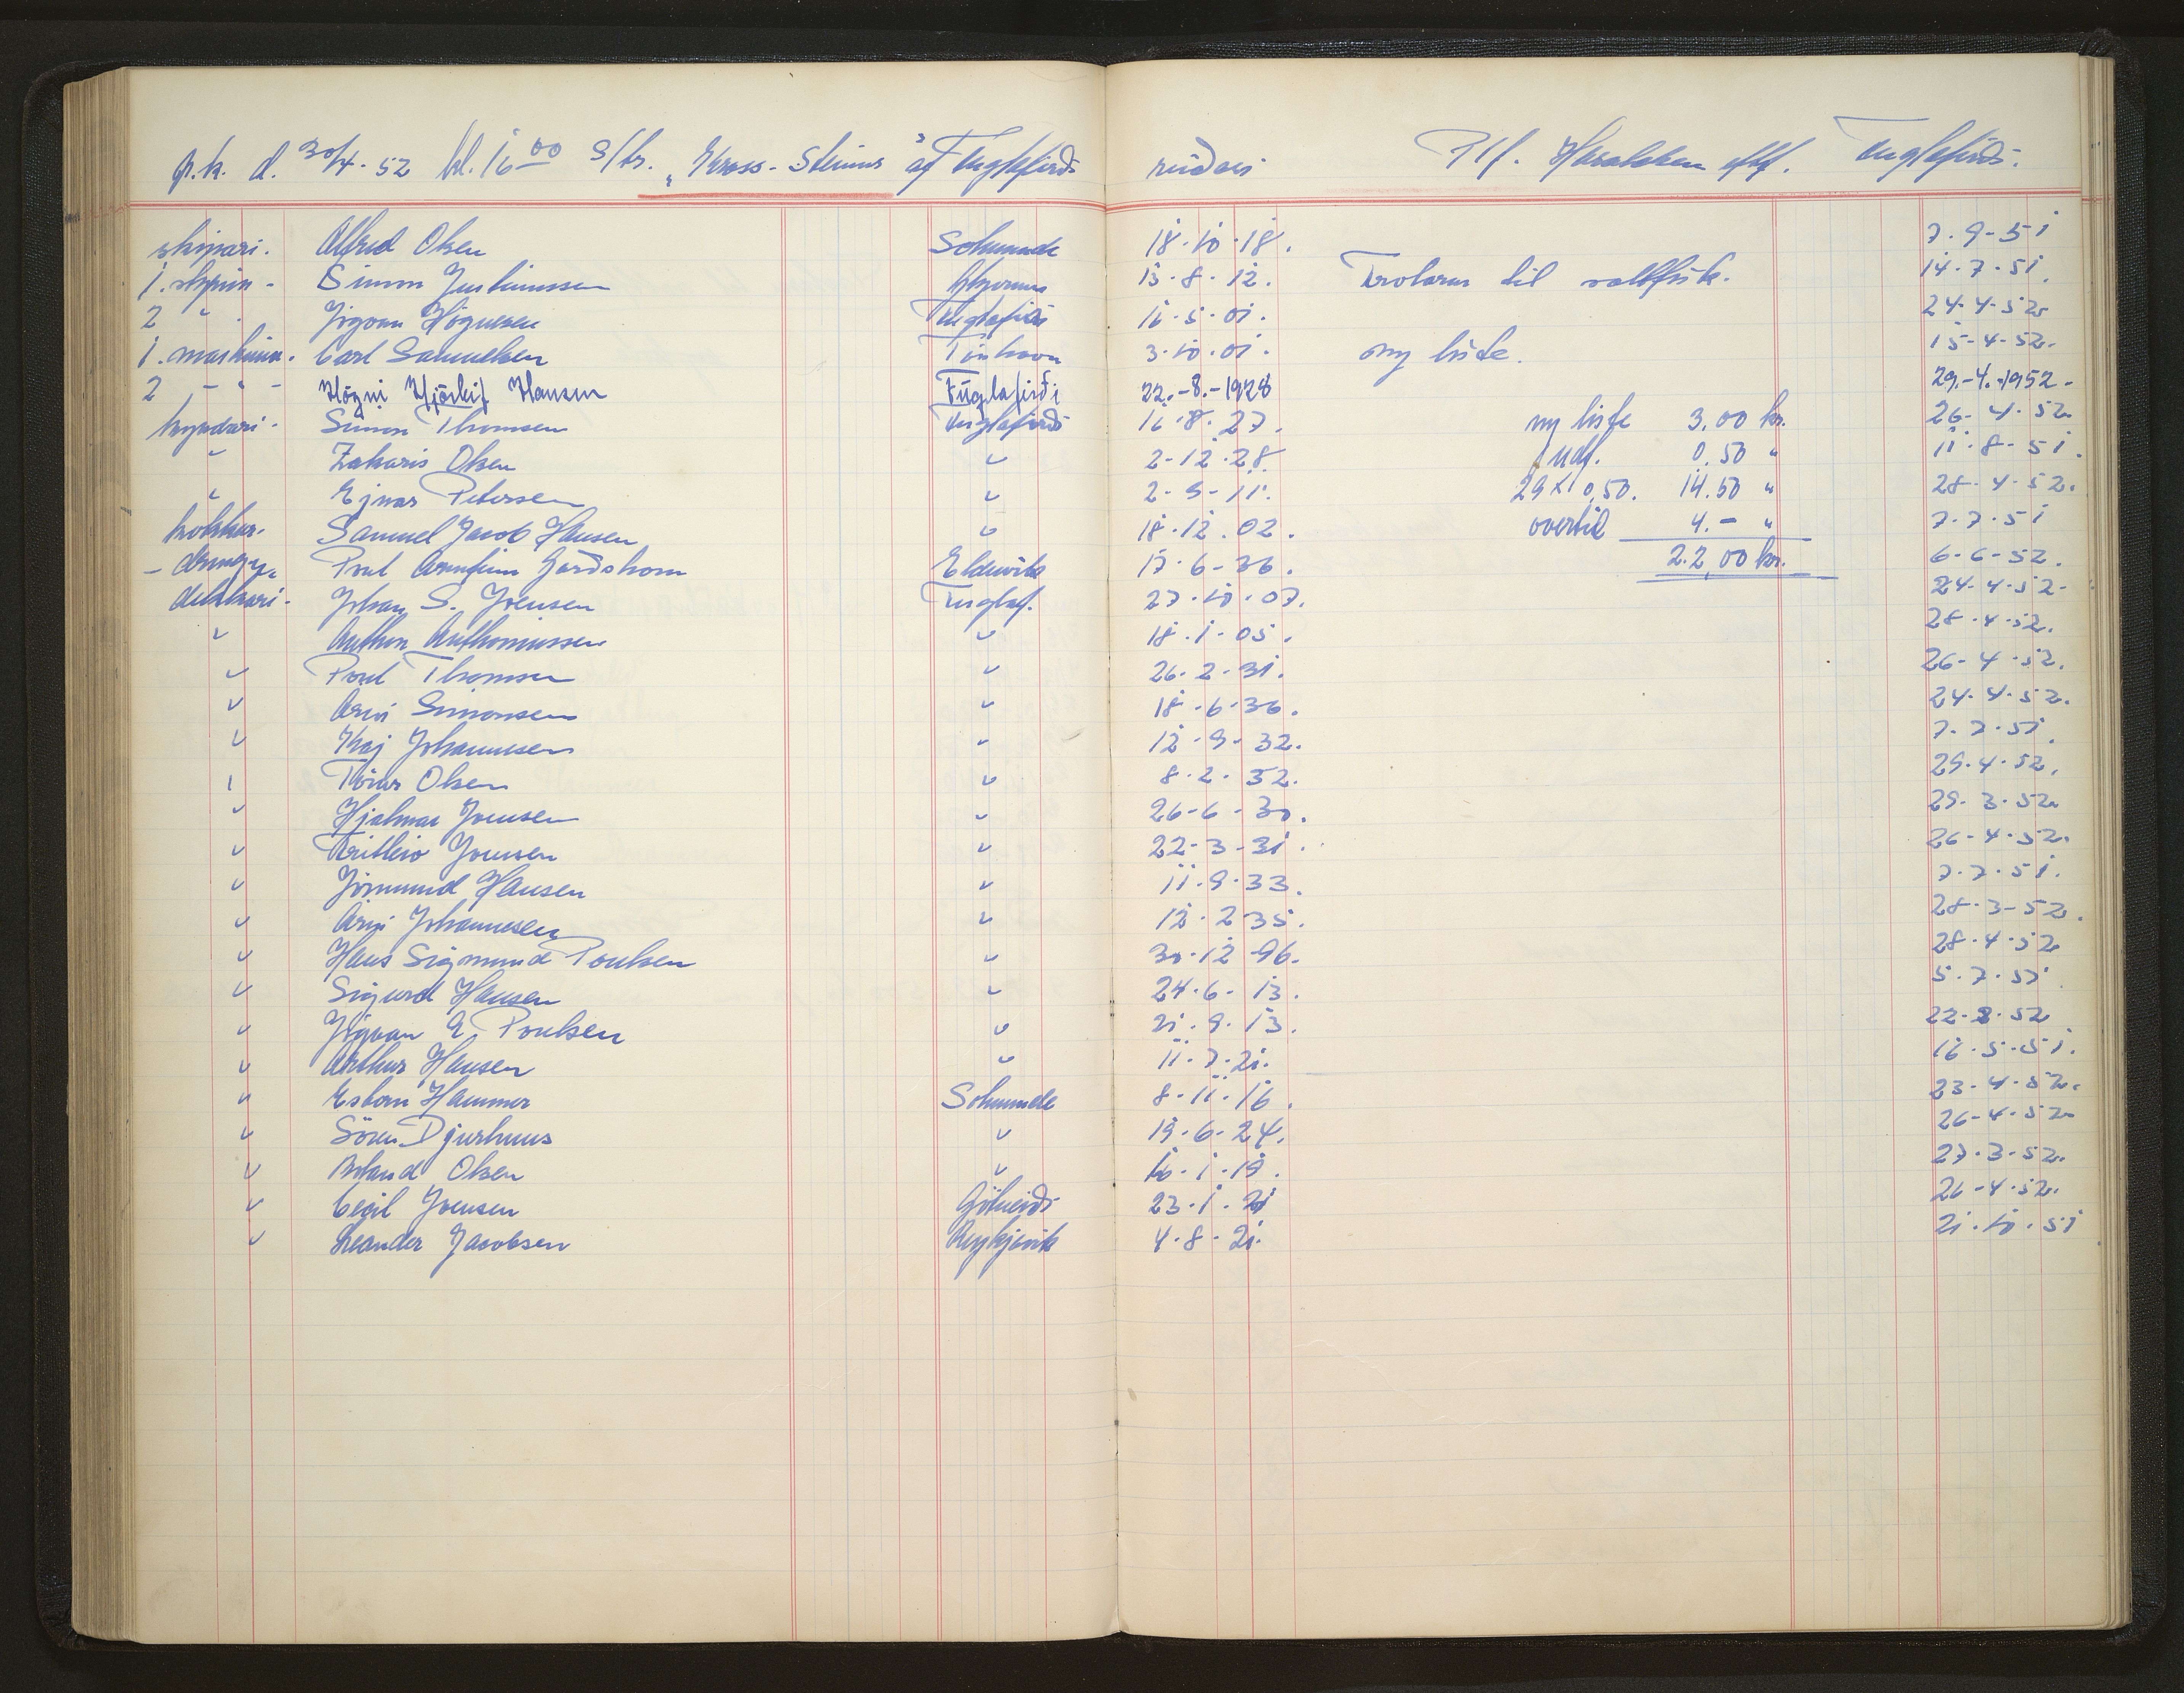 p.k. d. 30/4-52 kl. 16 00 S/tr. "Kross-Steinur" af Fuglefirdi ríðari P/f. Haraldsen eftf. Fuglefirdi.
skipari. Alfred Olsen Solmunde 18.10.18. 7.9-51
1. stýrim- Simon Justinussen 13.8.12. Trolarur til saltfisk. 14.7.51.
2 " . Jógvan Högnesen Fuglafirdi 16.5.01. 24.4.52
1. maskinm. Carl Samuelsen Tórshavn 3.10.01. ny liste. 15-4-52.
2 - " - Högni Hjörleif Hansen Fúglafirði 22.-8.-1928 29.-4.-1952.
kyndari. Simon Thomsen Fuglafirdi 16.8.27. ny liste 3,00 kr. 26-4-52
" Zakaris Olsen " 2-12.28. 1 udf. 0,50 " 11.8-51.
" Ejnar Petersen " 2-9-11. 29 x 0,50. 14.50 " 28.4.52.
kokkur. Samuel Jacob Hansen " 18.12.02. overtid 4.- " 7.7.51
- drong. Poul Arnfinn Garðshorn Eldevik 17.6-36. 22,00 kr. 6-6-52.
dekkari. Johan S. Joensen Fuglaf. 27.10.07. 24.4.52-
" Anthon Anthoniussen " 18.1.05. 28.4.52.
" Poul Thomsen " 26.2.31. 26-4.52.
" Arni Simonsen " 18.6.36. 24.4.52.
" Kaj Johannesen " 12.9.32. 7.7.51.
" Tórur Olsen " 8.2.32. 29.4.52.
" Hjalmar Joensen " 26-6-30. 29.3.52
" Fritleiv Joensen " 22-3-31. 26-4-52.
" Jórmund Hansen " 11.9.33. 7.7.51.
" Arni Johannesen " 12.2.35. 28.3-52.
" Hans Sigmund Poulsen " 30.12.96. 28.4.52
" Sigurd Hansen " 24.6.13. 5.7.51.
" Jógvan E. Poulsen " 21.9.13. 22-3.52
" Arthur Hansen " 11.7.21. 16.5.51.
" Esbern Hammer Solmunde 8.11.16. 23.4.52.
" Sören Djurhuus " 19.6.24. 26-4-52
" Erland Olsen " 10.1.19. 27.3.52.
" Cecil Joensen Götueidi 23.1.21 26-4.52.
" Leander Jacobsen Reykjavik 4.8.21. 21.10.51